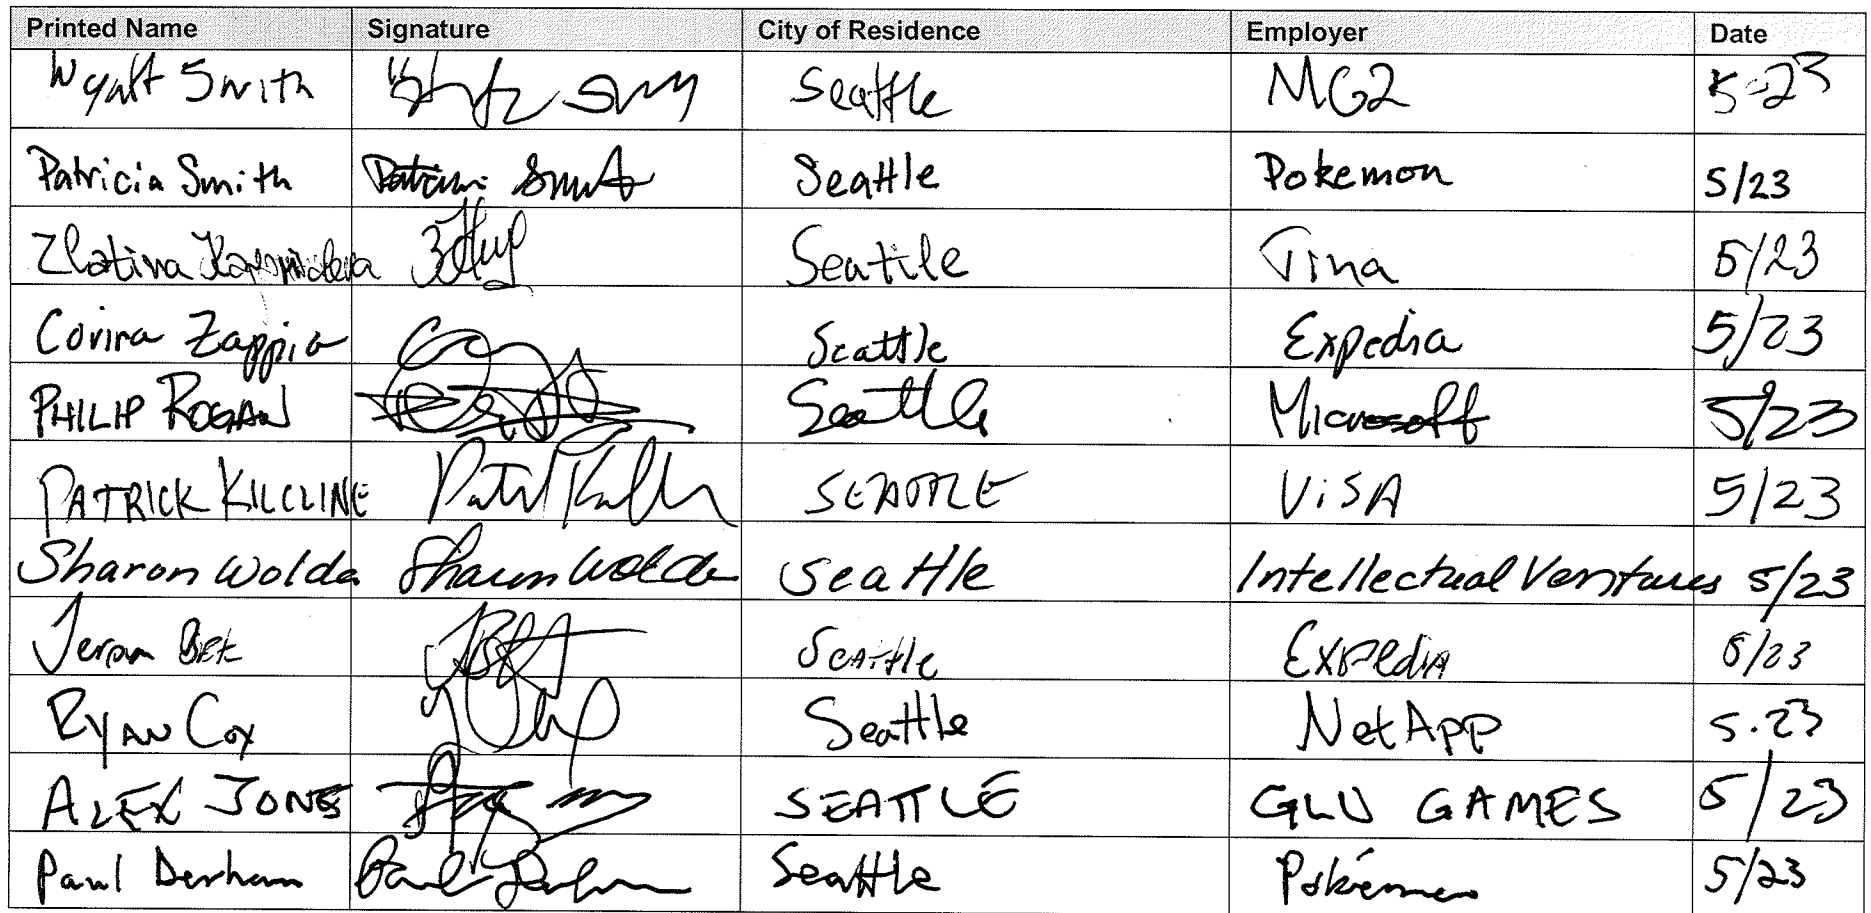 Printed Name Signature City of Residence Employer Date
Wyatt Smith Seattle MG2 5-23
Patricia Smith Patricia Smith Seattle Pokemon 5/23
Zlatina Seattle Tina 5/23
Corina Zappia Seattle Expedia 5/23
PHILIP ROGAN Seattle Microsoft 5/23
PATRICK KILCLINE SEATTLE ViSA 5/23
Sharon Wolde Sharon Wolde Seattle Intellectual Ventures 5/23
Jeram Seattle Expedia 5/23
RYAN COX Seattle NetApp 5.23
ALEX JONES SEATTLE GLU GAMES 5/23
Paul Derham Paul Derham Seattle Pokémon 5/23